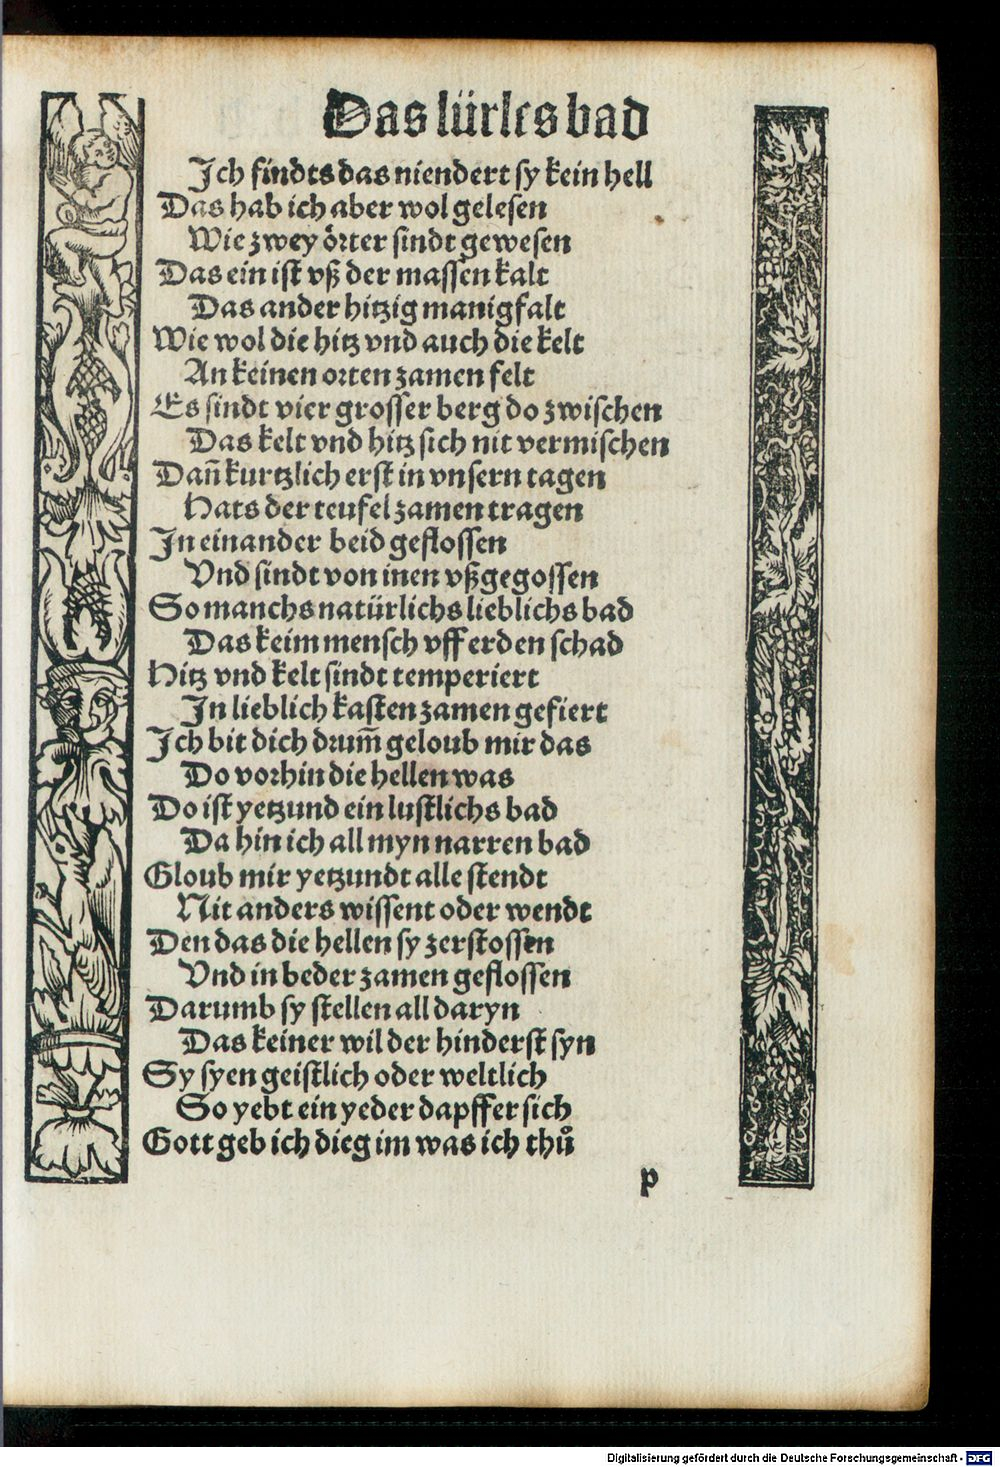 Das lürles bad
Ich findts das niendert sy kein hell
Das hab ich aber wol gelesen
Wie zwey örter sindt gewesen
Das ein ist vß der massen kalt
Das ander hitzig manigfalt
Wie wol die hitz vnd auch die kelt
An keinen orten zamen felt
Es sindt vier grosser berg do zwischen
Das kelt vnd hitz sich nit vermischen
Dañ kurtzlich erst in vnsern tagen
Hats der teufel zamen tragen
In einander beid geflossen
Vnd sindt von inen vßgegossen
So manchs natürlichs lieblichs bad
Das keim mensch vff erden schad
Hitz vnd kelt sindt temperiert
In lieblich kasten zamen gefiert
Ich bit dich drum̄ geloub mir das
Do vorhin die hellen was
Do ist yetzund ein lustlichs bad
Da hin ich all myn narren bad
Gloub mir yetzundt alle stendt
Nit anders wissent oder wendt
Den das die hellen sy zerstossen
Vnd in beder zamen geflossen
Darumb sy stellen all daryn
Das keiner wil der hinderst syn
Sy syen geistlich oder weltlich
So yebt ein yeder dapffer sich
Gott geb ich dieg im was ich thuͦ
p
Digitalisierung gefördert durch die Deutsche Forschungsgemeinschaft - DFG